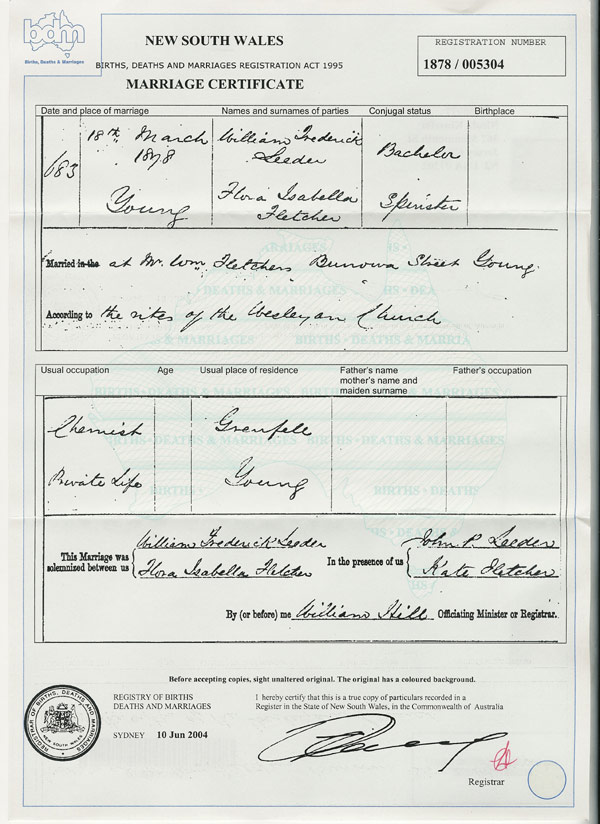 bdm
Births, Deaths & Marriages
NEW SOUTH WALES
BIRTHS, DEATHS AND MARRIAGES REGISTRATION ACT 1995
MARRIAGE CERTIFICATE
REGISTRATION NUMBER
1878 / 005304
Date and place of marriage Names and surnames of parties Conjugal status Birthplace
683 18th March 1878 William Frederick Leeder Bachelor
Young Flora Isabella Fletcher Spinster
Married in the at Mr. Wm. Fletchers Burrowa Street Young
According to the rites of the Wesleyan Church
Usual occupation Age Usual place of residence Father's name mother's name and maiden surname Father's occupation
Chemist Grenfell
Private Life Young
This Marriage was solemnized between us William Frederick Leeder Flora Isabella Fletcher
In the presence of us John P. Leeder Kate Fletcher
By (or before) me William Hill Officiating Minister or Registrar.
Before accepting copies, sight unaltered original. The original has a coloured background.
REGISTRAR OF BIRTHS, DEATHS AND MARRIAGES
NEW SOUTH WALES
REGISTRY OF BIRTHS
DEATHS AND MARRIAGES
SYDNEY 10 Jun 2004
I hereby certify that this is a true copy of particulars recorded in a
Register in the State of New South Wales, in the Commonwealth of Australia
Registrar